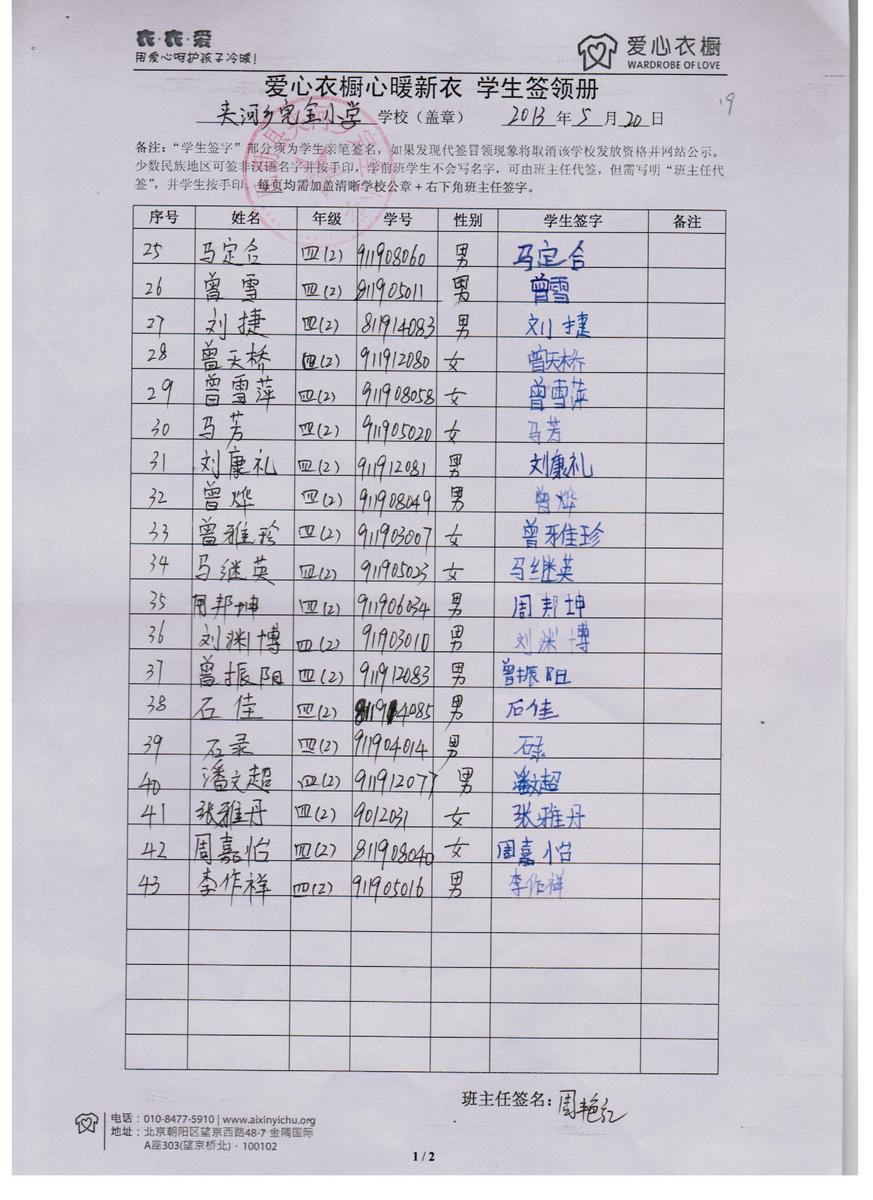 衣·衣·爱
用爱心呵护孩子冷暖!
爱心衣橱
WARDROBE OF LOVE
爱心衣橱心暖新衣 学生签领册
19
夹河乡完全小学 学校（盖章） 2013 年 5 月 20 日
备注：“学生签字”部分须为学生亲笔签名，如果发现代签冒领现象将取消该学校发放资格并网站公示。
少数民族地区可签非汉语名字并按手印，学前班学生不会写名字，可由班主任代签，但需写明“班主任代
签”，并学生按手印。每页均需加盖清晰学校公章+右下角班主任签字。
序号 姓名 年级 学号 性别 学生签字 备注
25 马定合 四(2) 911908060 男 马定合
26 曾雪 四(2) 811905011 男 曾雪
27 刘捷 四(2) 811914083 男 刘捷
28 曾天桥 四(2) 911912080 女 曾天桥
29 曾雪萍 四(2) 911908058 女 曾雪萍
30 马芳 四(2) 911905020 女 马芳
31 刘康礼 四(2) 911912081 男 刘康礼
32 曾烨 四(2) 911908049 男 曾烨
33 曾雅珍 四(2) 911903007 女 曾雅珍
34 马继英 四(2) 911905023 女 马继英
35 周邦坤 四(2) 911906034 男 周邦坤
36 刘渊博 四(2) 911903010 男 刘渊博
37 曾振阳 四(2) 911912083 男 曾振阳
38 石佳 四(2) 811914085 男 石佳
39 石录 四(2) 911904014 男 石录
40 潘文超 四(2) 911912077 男 潘文超
41 张雅丹 四(2) 9012031 女 张雅丹
42 周嘉怡 四(2) 811908040 女 周嘉怡
43 李作祥 四(2) 911905016 男 李作祥
班主任签名：周艳红
电话：010-8477-5910 | www.aixinyichu.org
地址：北京朝阳区望京西路48-7 金隅国际
A座303(望京桥北)·100102
1 / 2